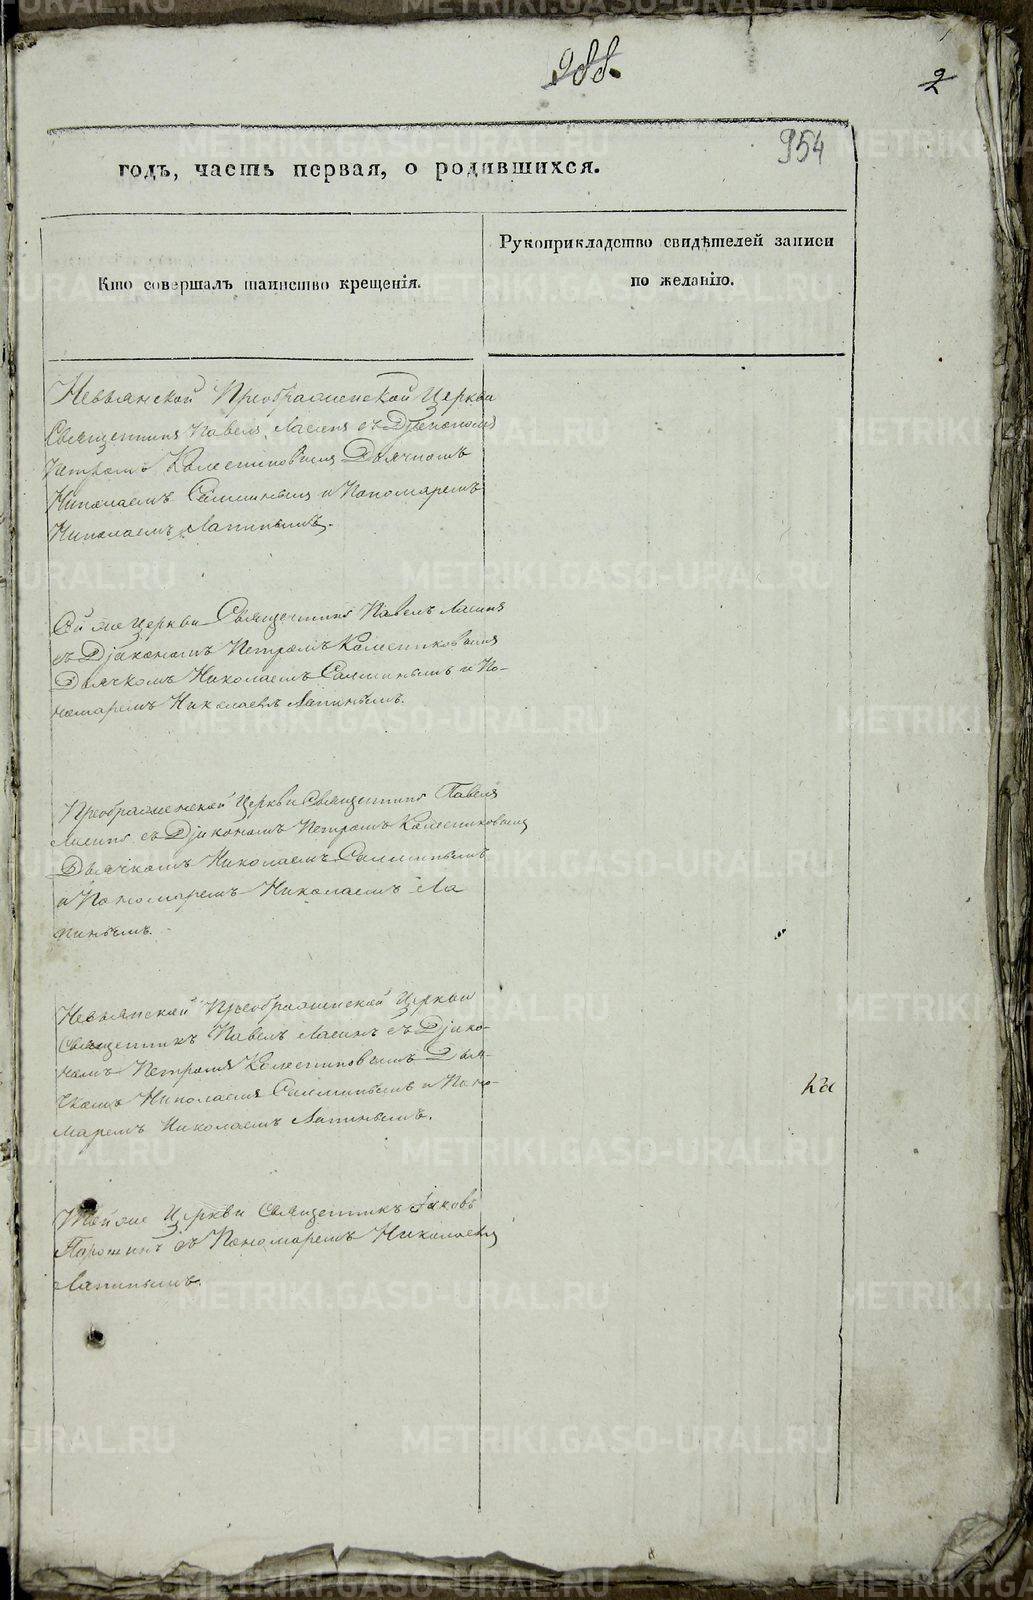 288.
2
954
годъ, часть первая, о родившихся.
Кто совершалъ таинство крещенія.
Рукоприкладство свидѣтелей записи
по желанію.
Невьянской Преображенской Церкви
Священникъ Павелъ с Дьякономъ
Петромъ Колесниковымъ Дьячкомъ
Николаемъ и Пономаремъ
Николаемъ Лапинымъ.
Церкви Священникъ Павелъ
съ Дьякономъ Петромъ Колесниковымъ
Дьячкомъ Николаемъ и По-
номаремъ Николаемъ Лапинымъ.
Преображенской Церкви Священникъ Павелъ
съ Дьякономъ Петромъ Колесниковымъ
Дьячкомъ Николаемъ
и Пономаремъ Николаемъ Ла
пинымъ.
Невьянской Преображенской Церкви
Священникъ Павелъ съ Дьяко-
номъ Петромъ Колесниковымъ Дья-
чкомъ Николаемъ и Поно-
маремъ Николаемъ Лапинымъ.
Той же Церкви Священникъ Іаковъ
съ Пономаремъ Николаемъ
Лапинымъ.
METRIKI.GASO-URAL.RU